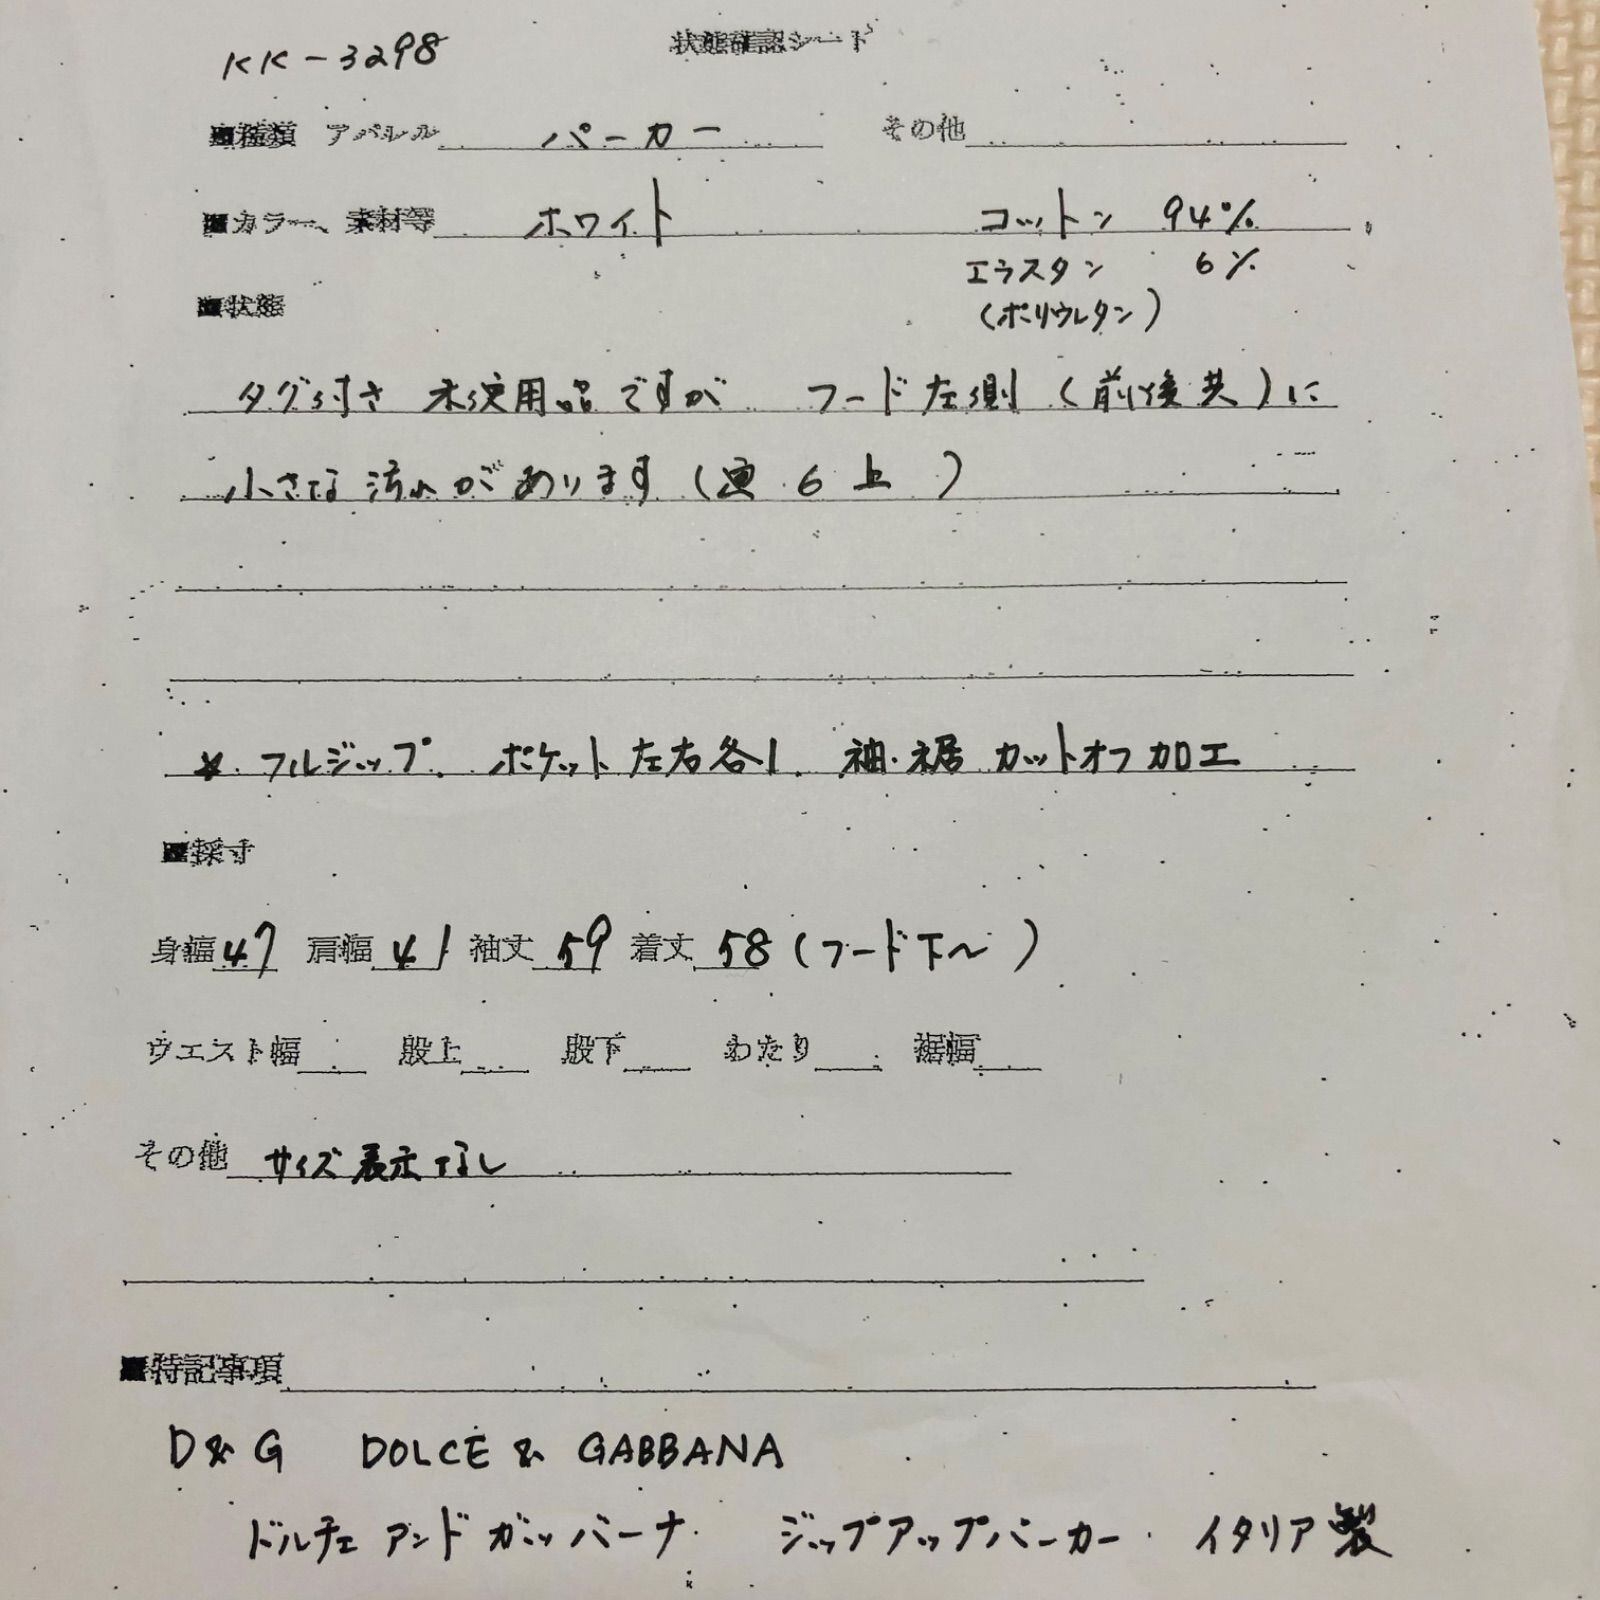 KK-3298
状態確認シート
■種類 アパレル パーカー その他
■カラー、素材等 ホワイト コットン 94%
エラスタン 6%
(ポリウレタン)
■状態
タグ付き 未使用品ですが フード左側(前後共)に
小さな汚れがあります(画6上)
* フルジップ. ポケット左右各1. 袖・裾 カットオフ加工
■採寸
身幅 47 肩幅 41 袖丈 59 着丈 58(フード下〜)
ウエスト幅 股上 股下 わたり 裾幅
その他 サイズ表示なし
■特記事項
D&G DOLCE & GABBANA
ドルチェ アンド ガッバーナ. ジップアップパーカー. イタリア製